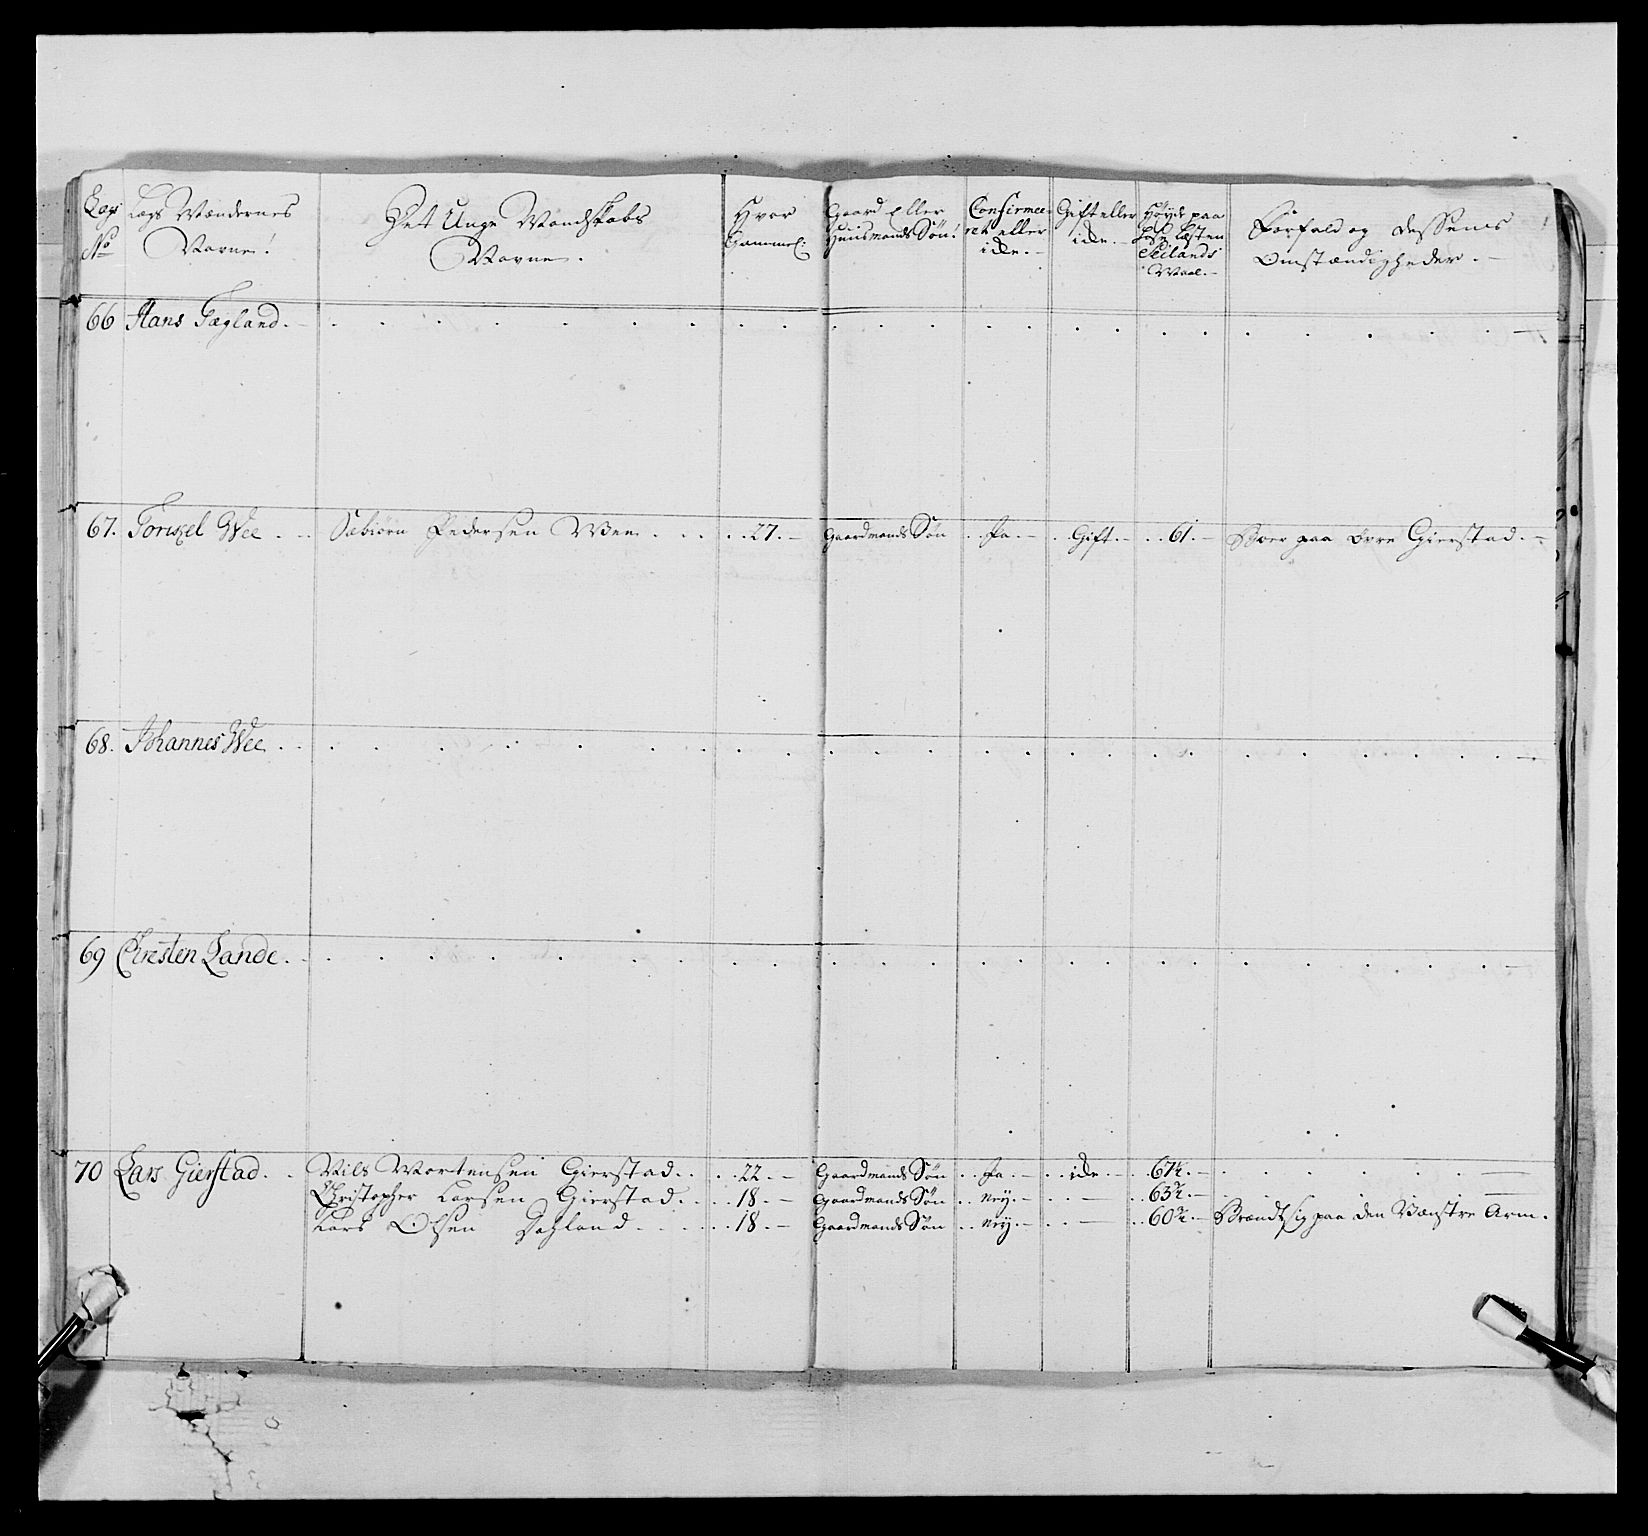 Lægs No | Lægs Mændernes Navne! | Det Unge Mandskabs Navne. | Hvor Gammel: | Gaard Eller Huusmands Søn! | Confirmeeret eller icke. | Gift eller icke. | Høyde paa Seilands Maal. | Forfald og dessens Omstændigheder.
66 Hans Fægland.
67. Torkel Wee . . Sæbiørn Pedersen Wee . . . 27. Gaardmands Søn . . Ja . . Gift . . 61. Boer paa øvre Gierstad.
68. Johannes Wee
69 Christen Lande.
70 Lars Gierstad. . Nils Mortensen Gierstad. . . 22. Gaardmands Søn . . Ja . . icke . . 67¼.
Christopher Larsen Gierstad. . . 18. Gaardmands Søn . . Neÿ . . — . . 63¾.
Lars Olsen Dahland . . . 18. Gaardmands Søn . . Neÿ . . — . . 60¾. Brændt sig paa den Vænstre Arm.